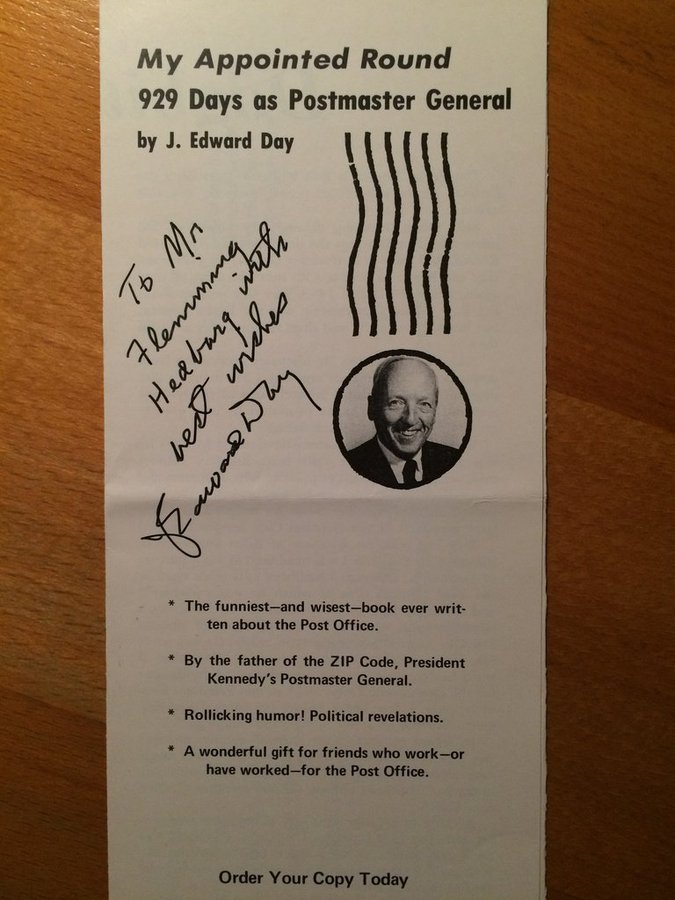 My Appointed Round
929 Days as Postmaster General
by J. Edward Day
To Mr
Flemming
Hedburg with
best wishes
J Edward Day
* The funniest—and wisest—book ever writ-
ten about the Post Office.
* By the father of the ZIP Code, President
Kennedy's Postmaster General.
* Rollicking humor! Political revelations.
* A wonderful gift for friends who work—or
have worked—for the Post Office.
Order Your Copy Today